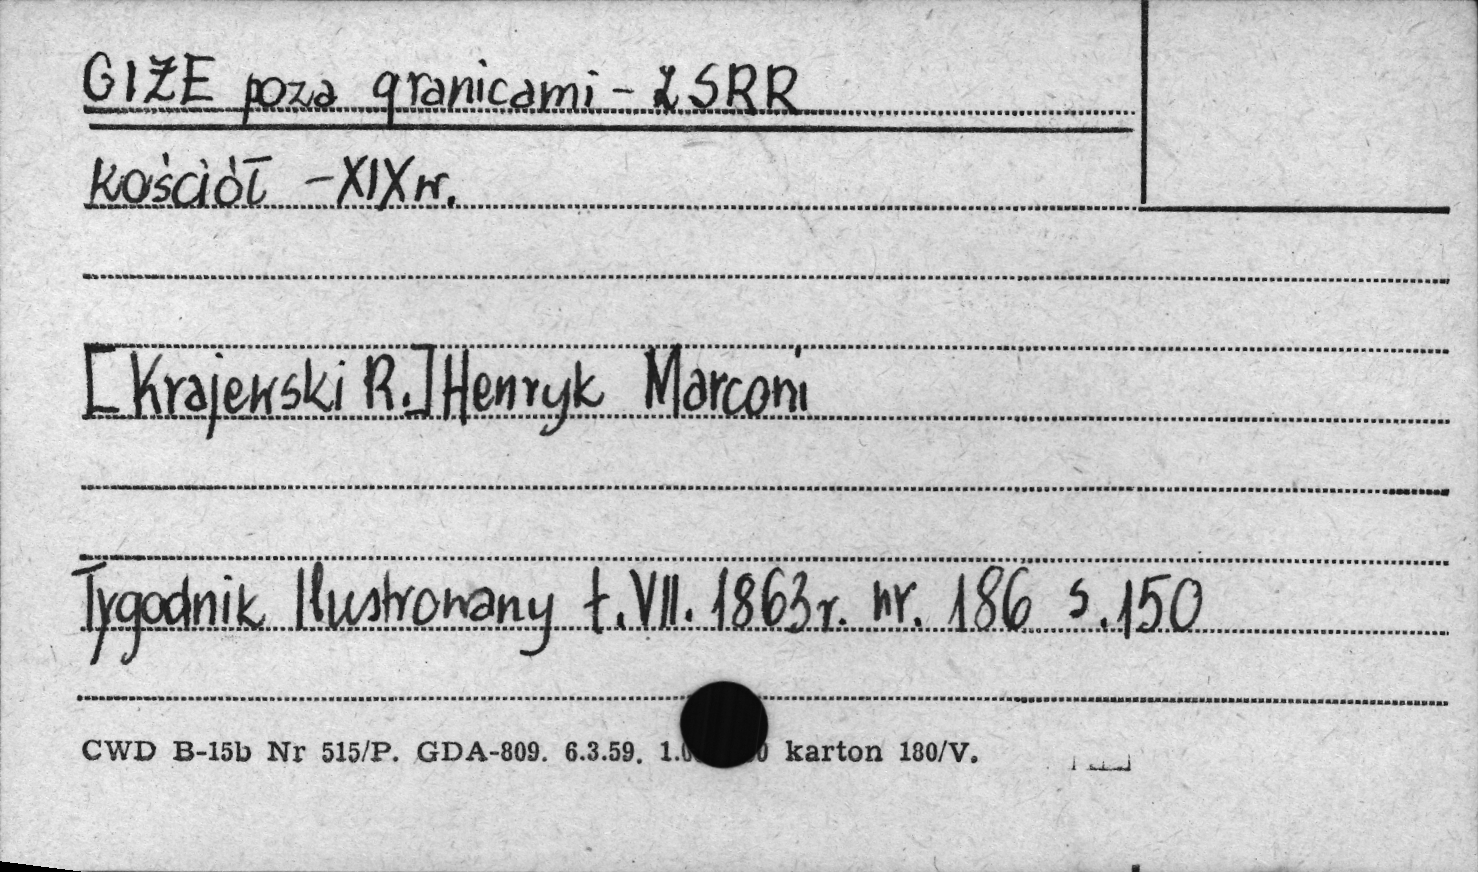 GIŻE poza granicami - ZSRR
Kościół - XIX w.
[Krajewski R.] Henryk Marconi
Tygodnik Ilustrowany t. VII. 1863 r. nr. 186 s. 150
CWD B-15b Nr 515/P. GDA-809. 6.3.59. karton 180/V.